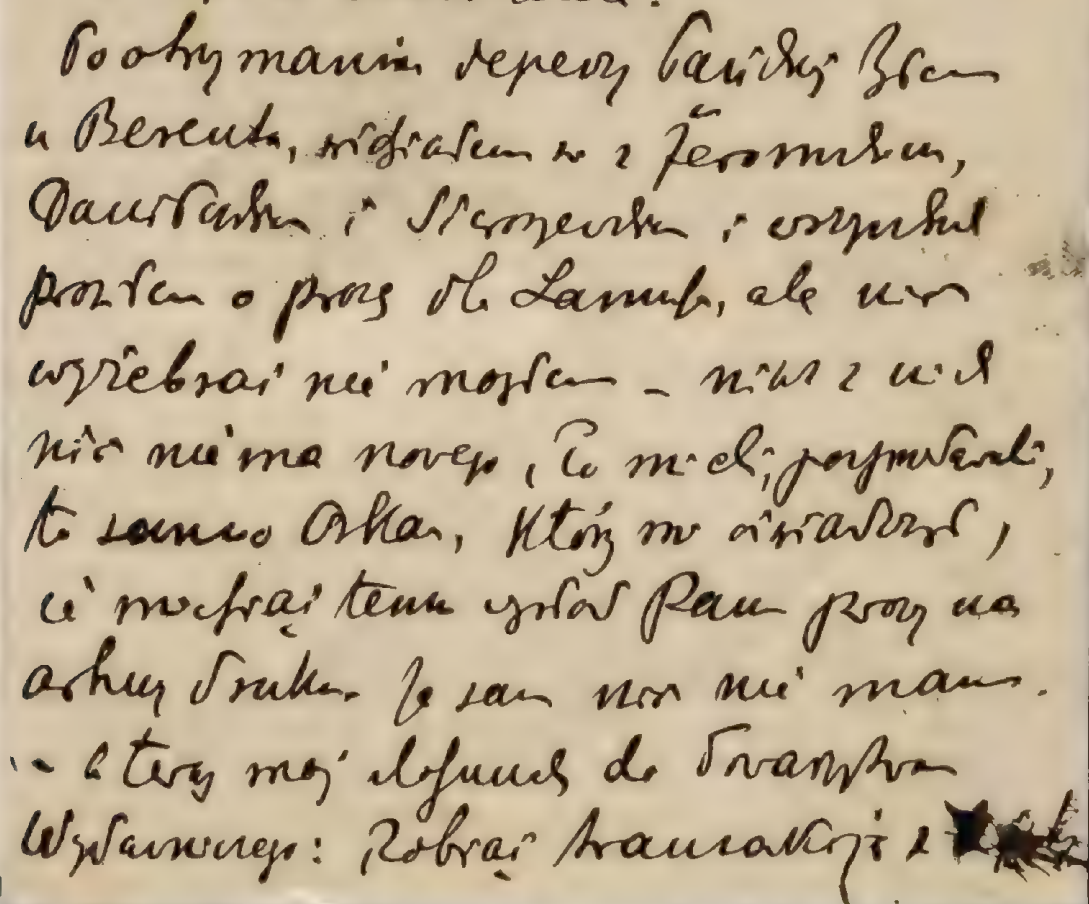 Po otrzymaniu depeszy Pańskiej byłem
u Berenta, widziałem się z Żeromskim,
Daniłowskim i Sieroszewskim i wszystkich
prosiłem o prozę dla Lamusa, ale nic
wyżebrać nie mogłem – nikt z nich
nic nie ma nowego, Co mieli, posprzedawali,
to samo Orkan, który mi oświadczył,
iż miesiąc temu wysłał Panu prozy na
arkusz druku. Ja sam nic nie mam.
– A teraz mój stosunek do Towarzystwa
Wydawniczego: transakcję z